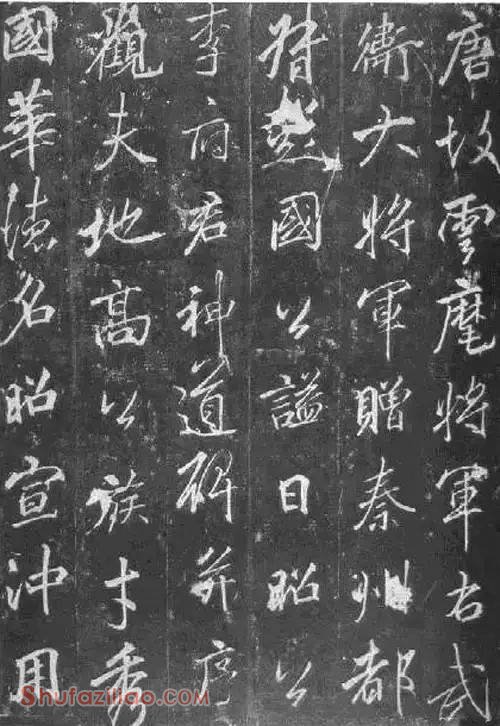 唐故雲麾将軍右武
衛大将軍贈秦州都
督國公謚曰昭公
李府君神道碑并序
觀夫地高公族才秀
國華德名昭宣沖用
Shufaziliao.COM